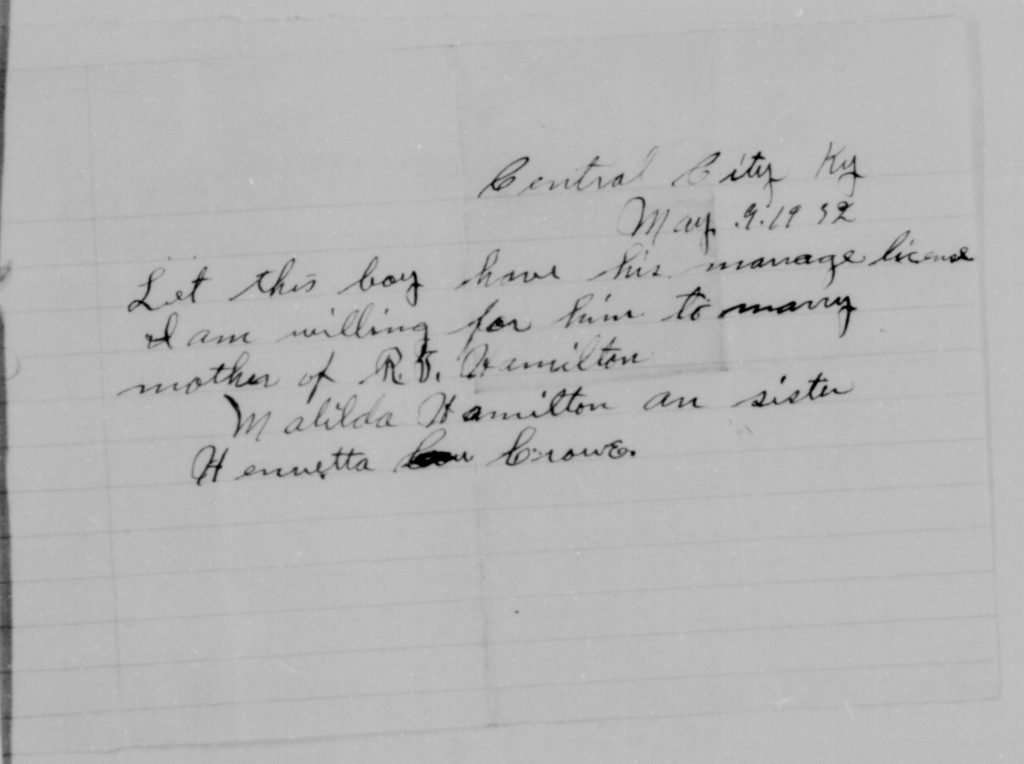 Central City Ky
May 9. 19 32
Let this boy have his marrage license
I am willing for him to marry
mother of R. V. Hamilton
Matilda Hamilton an sister
Henrietta Crowe.